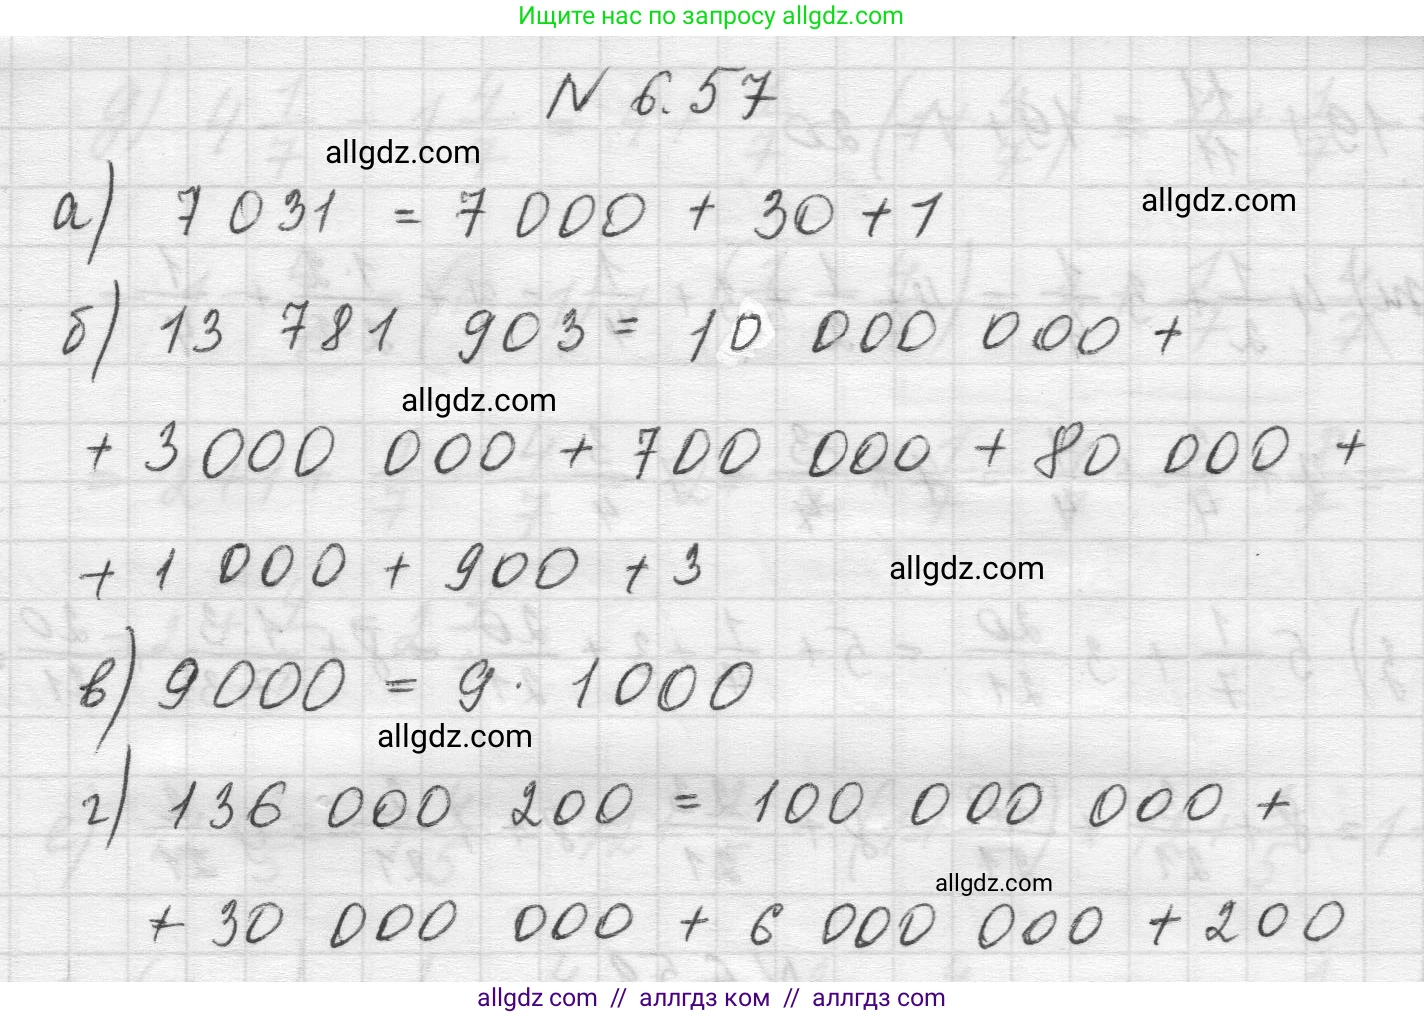 Ищите нас по запросу allgdz.com
N 6.57
allgdz.com
а) 7 031 = 7 000 + 30 + 1
allgdz.com
б) 13 781 903 = 10 000 000 +
allgdz.com
+ 3 000 000 + 700 000 + 80 000 +
+ 1 000 + 900 + 3
allgdz.com
в) 9000 = 9 · 1000
allgdz.com
г) 136 000 200 = 100 000 000 +
allgdz.com
+ 30 000 000 + 6 000 000 + 200
allgdz com // аллгдз ком // аллгдз com